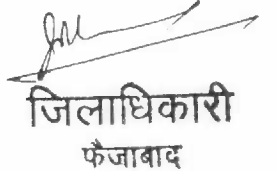 जिलाधिकारी
फैजाबाद